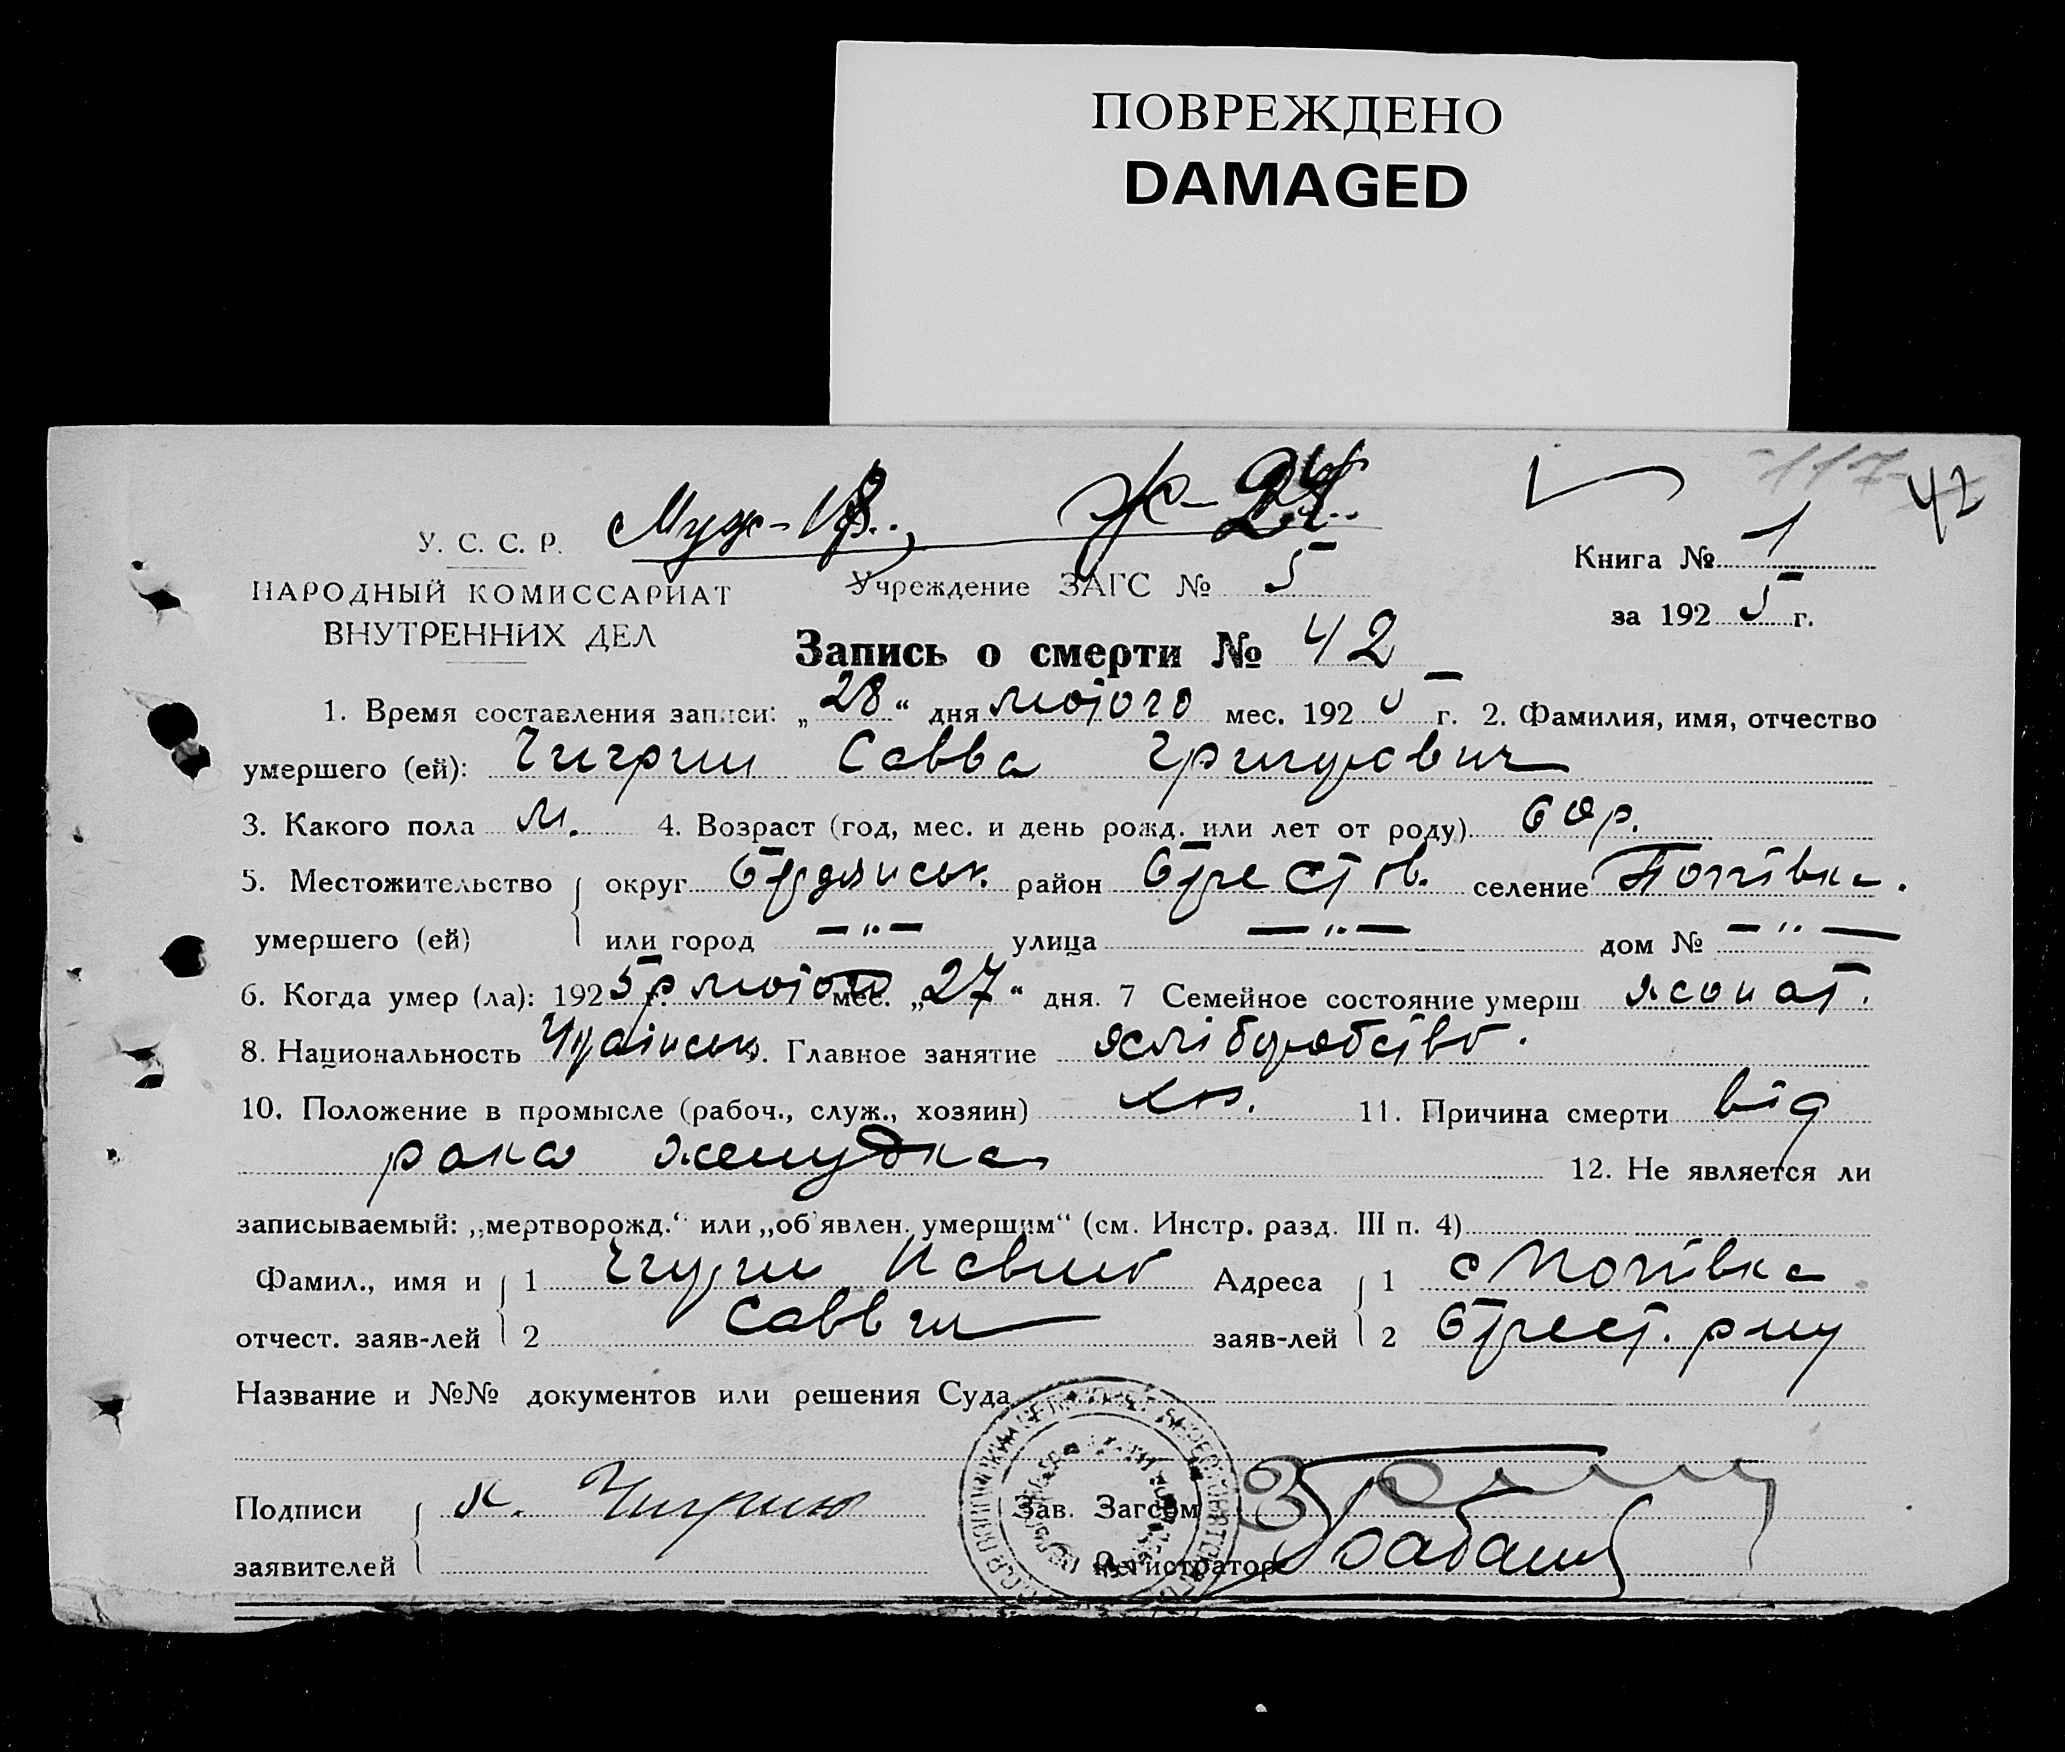 ПОВРЕЖДЕНО
DAMAGED
-117- 42
Муж-18. Ж-24.
У. С. С. Р.
НАРОДНЫЙ КОМИССАРИАТ
ВНУТРЕННИХ ДЕЛ
Учреждение ЗАГС № 5
Книга № 1
за 1925 г.
Запись о смерти № 42
1. Время составления записи: „28“ дня лютого мес. 1925 г. 2. Фамилия, имя, отчество
умершего (ей): Чигрин Савва Григорович
3. Какого пола м. 4. Возраст (год, мес. и день рожд. или лет от роду) 60 р.
5. Местожительство округ Бердянськ. район Берестов. селение Попівка.
умершего (ей) или город —"— улица —"— дом № —"—
6. Когда умер (ла): 1925 р. г. лютого мес. „27“ дня. 7 Семейное состояние умерш жонат.
8. Национальность Украінськ. Главное занятие хліборобство.
10. Положение в промысле (рабоч., служ., хозяин) хоз. 11. Причина смерти від
рака желудка 12. Не является ли
записываемый: „мертворожд.“ или „об'явлен. умершим“ (см. Инстр. разд. III п. 4)
Фамил., имя и 1 Чигрин Адреса 1 с Попівка
отчест. заяв-лей 2 Савви заяв-лей 2 Берест. р-ну
Название и №№ документов или решения Суда
Подписи Чигрин Зав. Загсом
заявителей Регистратор